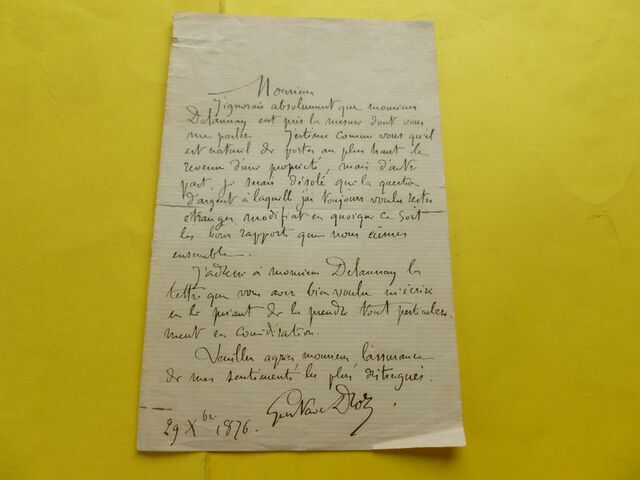 Monsieur
J'ignorais absolument que monsieur
Delaunay eut pris la mesure dont vous
me parlez. J'estime comme vous qu'il
est naturel de porter au plus haut le
revenu d'une propriété, mais d'autre
part, je serais désolé que la question
d'argent à laquelle j'ai toujours voulu rester
étranger modifiat en quoique ce soit
les bons rapports que nous eûmes
ensemble.
J'adresse à monsieur Delaunay la
lettre que vous avez bien voulu m'écrire
en le priant de la prendre tout particulière-
ment en considération.
Veuillez agréer, monsieur l'assurance
de mes sentiments les plus distingués.
Gustave Droz.
29 Xbre 1876.